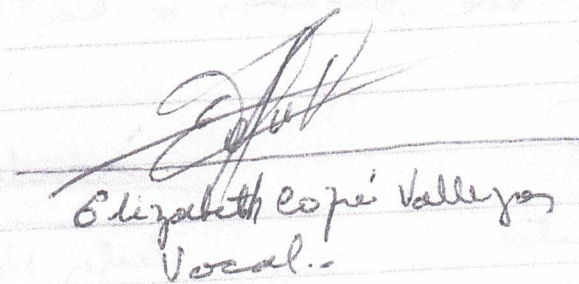 Elizabeth Copé Vallejos
Vocal..